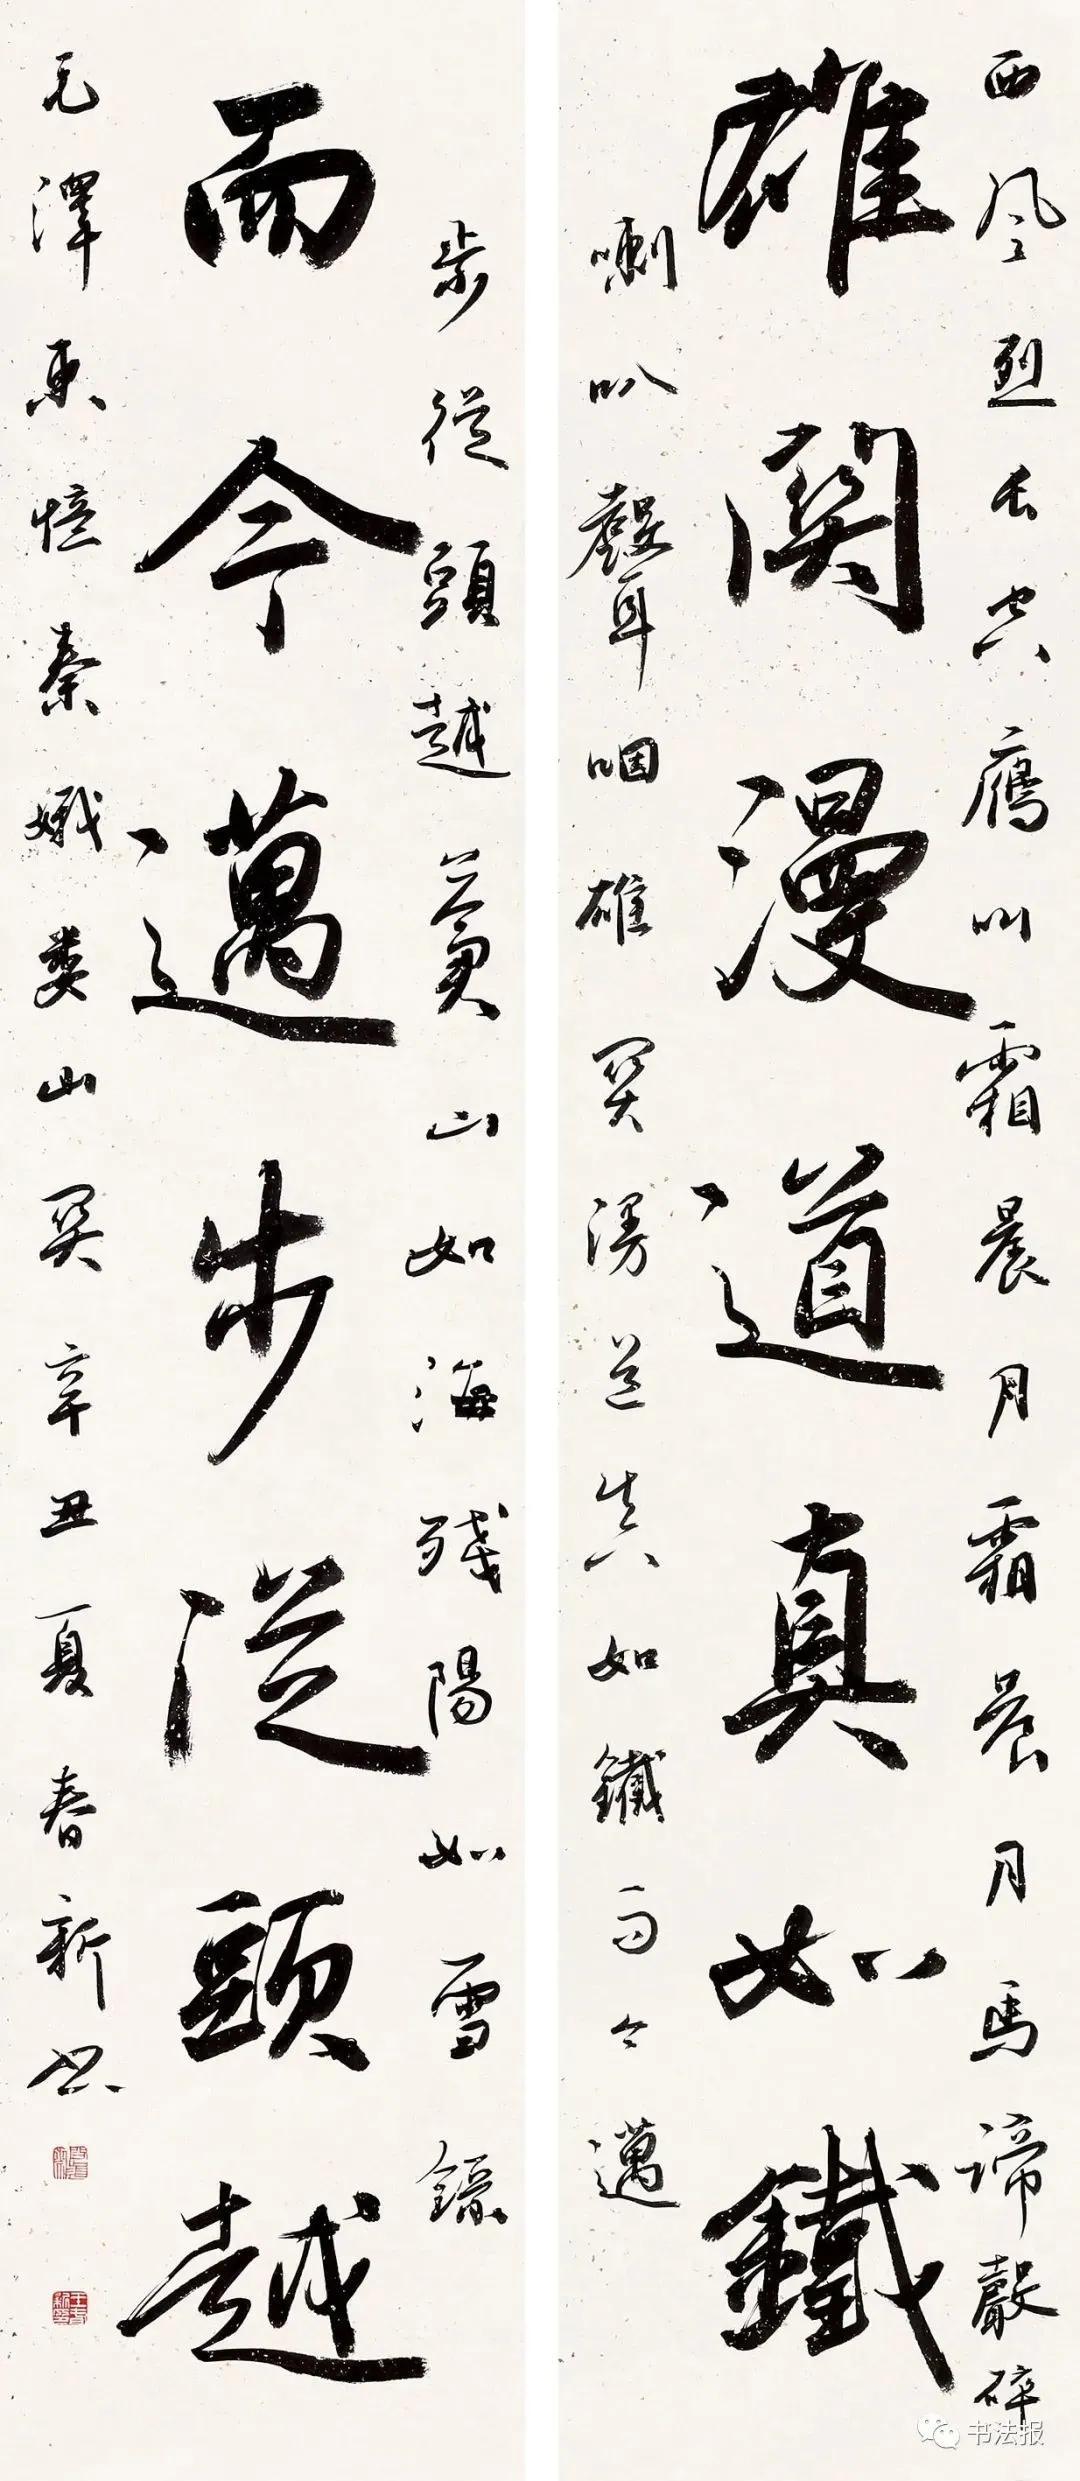 西風烈長空鴈叫霜晨月霜晨月馬蹄聲碎
雄関漫道真如鐵
喇叭聲咽雄関漫道真如鐵而今邁
步從頭越蒼山如海殘陽如雪錄
而今邁步從頭越
毛澤東憶秦娥婁山関辛丑夏春新书
书法报